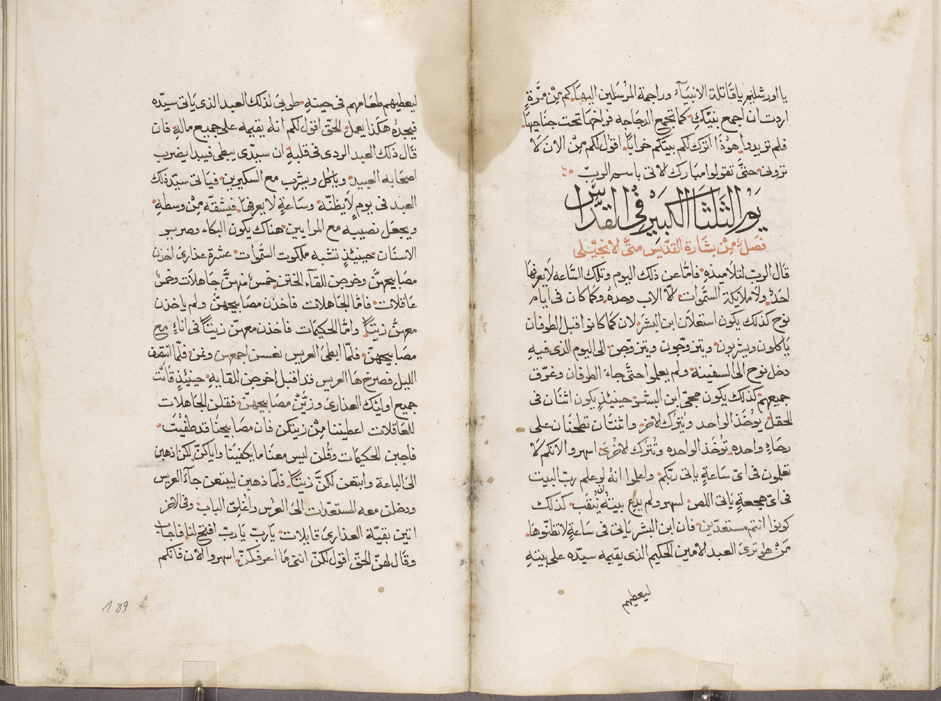 يا اورشليم يا قاتلة الانبياء وراجمة المرسلين اليها كم من مرّةٍ
اردت ان اجمع بنيك كما تجمع الدجاجه فراخها تحت جناحيها
فلم تريدوا هوذا اترك لكم بيتكم خرابًا اقول لكم من الان لا
تروني حتّى تقولوا مبارك الاتي باسم الرب
يوم الثلثا الكبير في القدّاس
فصل من بشارة القدّيس متّى الانجيلي
قال الرب لتلاميذه فامّا عن ذلك اليوم وتلك السّاعه لا يعرفها
احدٌ ولا ملايكة السّموات الا الاب وحده وكما كان في ايام
نوح كذلك يكون استعلان ابن البشر لان كما كانوا قبل الطوفان
ياكلون ويشربون ويتزوّجون ويتزوّجن الى اليوم الذي فيه
دخل نوح الى السفينة ولم يعلموا حتّى جاء الطوفان وغرّق
جميعهم كذلك يكون مجي ابن البشر حينيذٍ يكون اثنان في
الحقل يوخذ الواحد ويترك الاخر واثنتان تطحنان على
رحاءٍ واحده توخذ الواحده وتترك الاخرى اسهروا الانكم لا
تعلمون في اي ساعةٍ ياتي ربّكم واعلموا انه لو علم ربّ البيت
في اي هجعةٍ ياتي اللص لسهر ولم يدع بيته ينقب كذلك
كونوا انتم مستعدّين فان ابن البشر ياتي في ساعةٍ لا تظنّوها
من هو ترى العبد الامين الحكيم الذي يقيمه سيّده على بنيه
ليعطيهم
ليعطيهم طعامهم في حينه طوبى لذلك العبد الذي ياتي سيّده
فيجده هكذا يعمل الحقّ اقول لكم انه يقيمه على جميع ماله فان
قال ذلك العبد الردي في قلبه ان سيدي يبطي فيبدا يضرب
اصحابه العبيد وياكل ويشرب مع السكيرين فياتي سيّد ذلك
العبد في يومٍ لا يظنّه وساعةٍ لا يعرفها فيشقّه من وسطه
ويجعل نصيبه مع المرايين هناك يكون البكاء وصرير
الاسنان حينيذٍ تشبه ملكوت السّموات عشرة عذارى اخذن
مصابيحهنّ وخرجن للقاء الختن خمسٌ منهنّ جاهلات وخمسٌ
عاقلات فامّا الجاهلات فاخذن مصابيحهنّ ولم ياخذن
معهنّ زيتًا وامّا الحكيمات فاخذن معهنّ زيتًا في اناءٍ مع
مصابيحهنّ فلمّا ابطى العريس نعسن اجمعهن ونمن فلمّا انتصف
الليل فصرخ ها العريس قد اقبل اخرجن للقايه حينيذٍ قامت
جميع اوليك العذارى وزيّنّ مصابيحهنّ فقلن الجاهلات
للعاقلات اعطيننا من زيتكن فان مصابيحنا قد طفيت
فاجبن الحكيمات وقلن ليس معنا ما يكفينا واياكنّ لكن اذهبن
الى الباعة وابتعن لكنّ زيتًا فلمّا ذهبن ليبتعن جاء العريس
ودخلن معه المستعدّات الى العرس واغلق الباب وفي الاخر
اتين بقيّة العذارى قايلات يا ربّ يا ربّ افتح لنا فاجاب
وقال لهنّ الحقّ اقول لكنّ انني ما اعرفكنّ اسهروا الان فانّكم
189